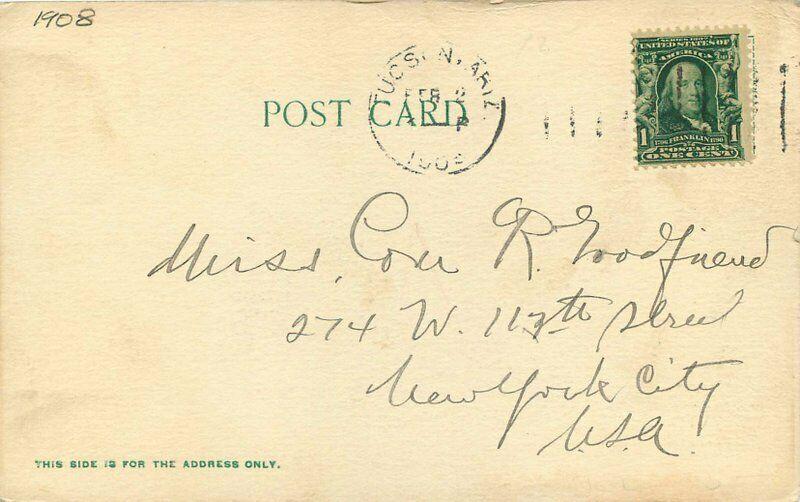 1908
TUCSON, ARIZ.
FEB 2
190
SERIES 1902
UNITED STATES OF
AMERICA
1 1
1706 FRANKLIN 1790
POSTAGE
ONE CENT
POST CARD
Miss, Cora R. Goodfriend
274 W. 112th Street
New York City
U.S.A.
THIS SIDE IS FOR THE ADDRESS ONLY.